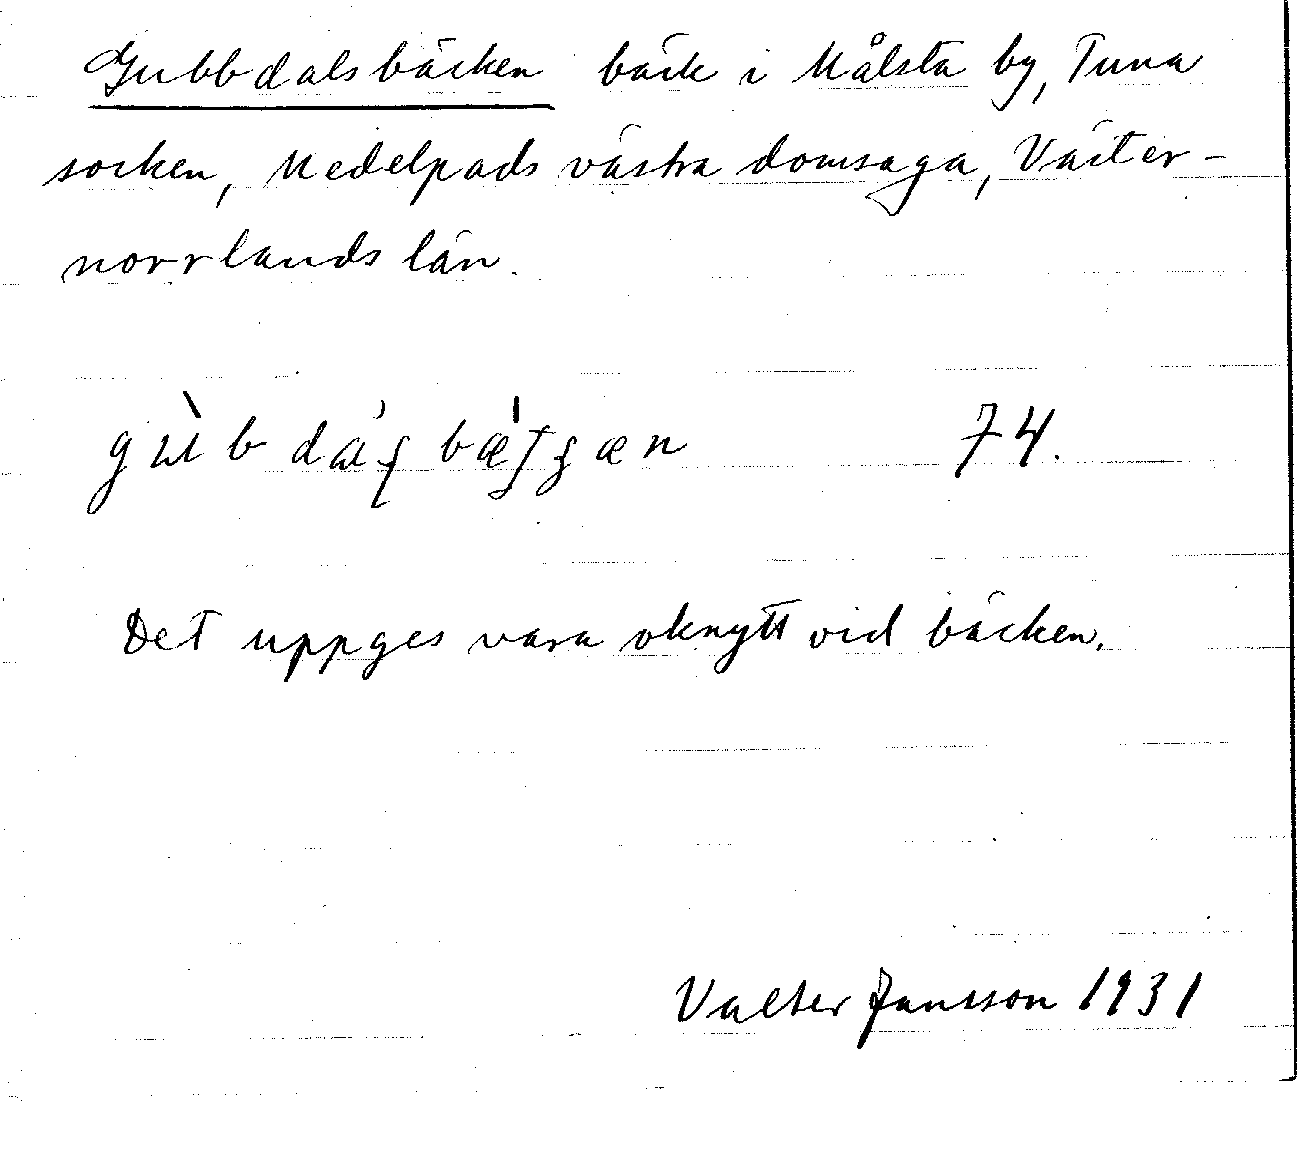 Gubbdalsbäcken bäck i Målsta by, Tuna
socken, Medelpads västra domsaga, Väster-
norrlands län.
74.
Det uppges vara oknytt vid bäcken.
Valter Jansson 1931